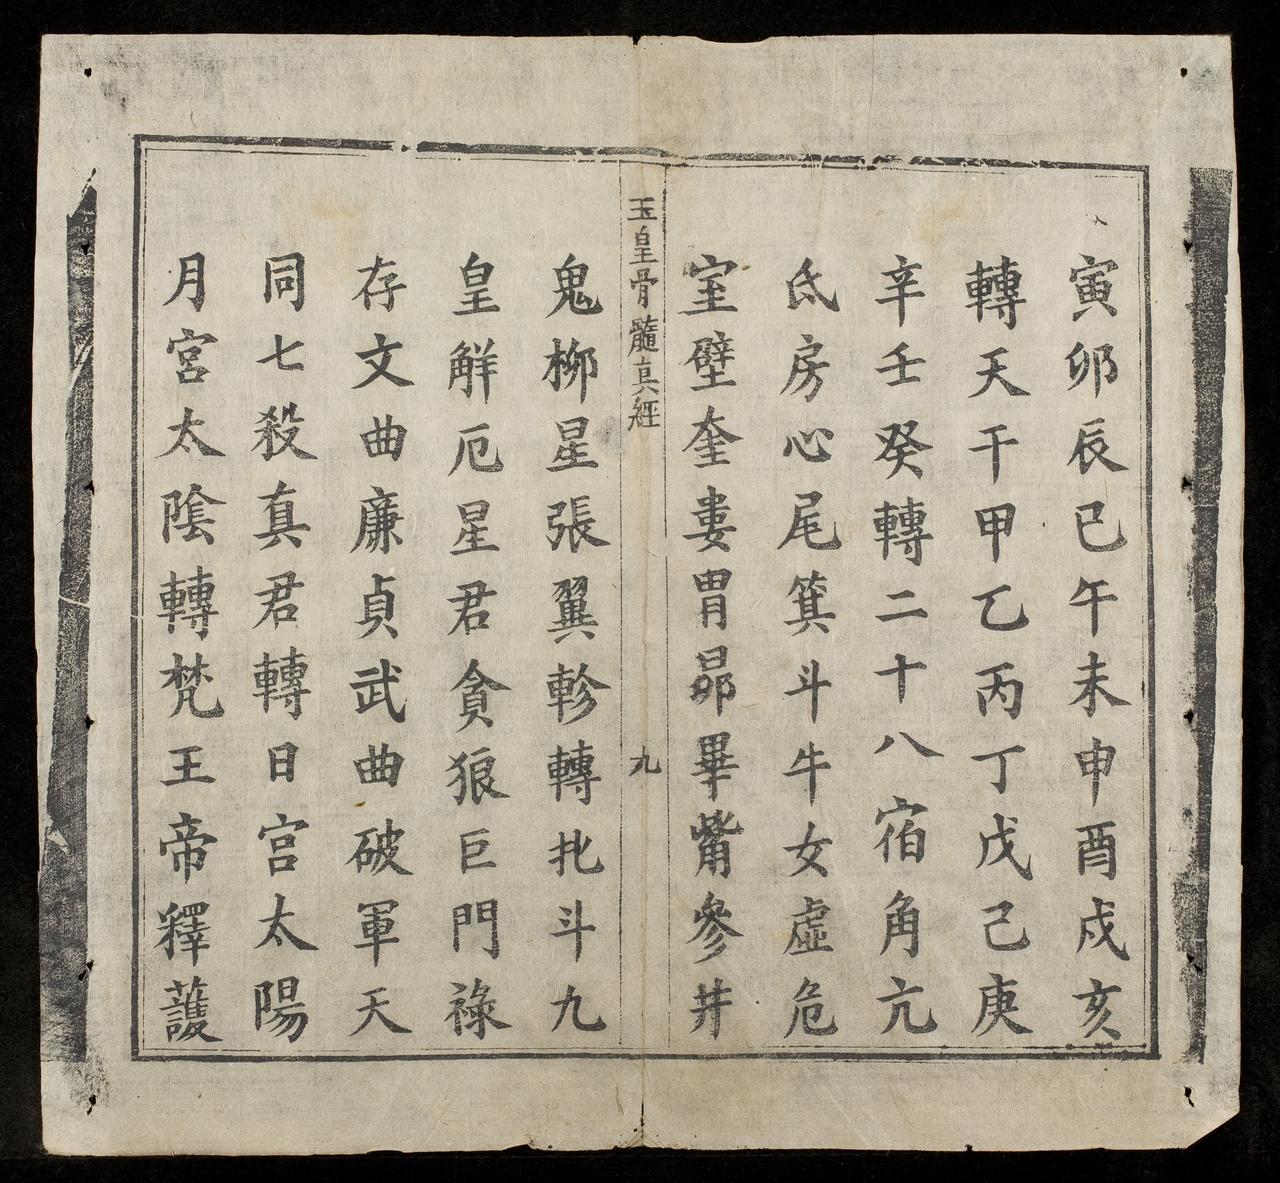 寅卯辰巳午未申酉戍亥
轉天干甲乙丙丁戊己庚
辛壬癸轉二十八宿角亢
氐房心尾箕斗牛女虛危
室壁奎婁胃昴畢觜參井
玉皇骨髓真經 九
鬼柳星張翼軫轉北斗九
皇觧厄星君貪狼巨門祿
存文曲廉貞武曲破軍天
同七殺真君轉日宮太陽
月宮太陰轉梵王帝釋護